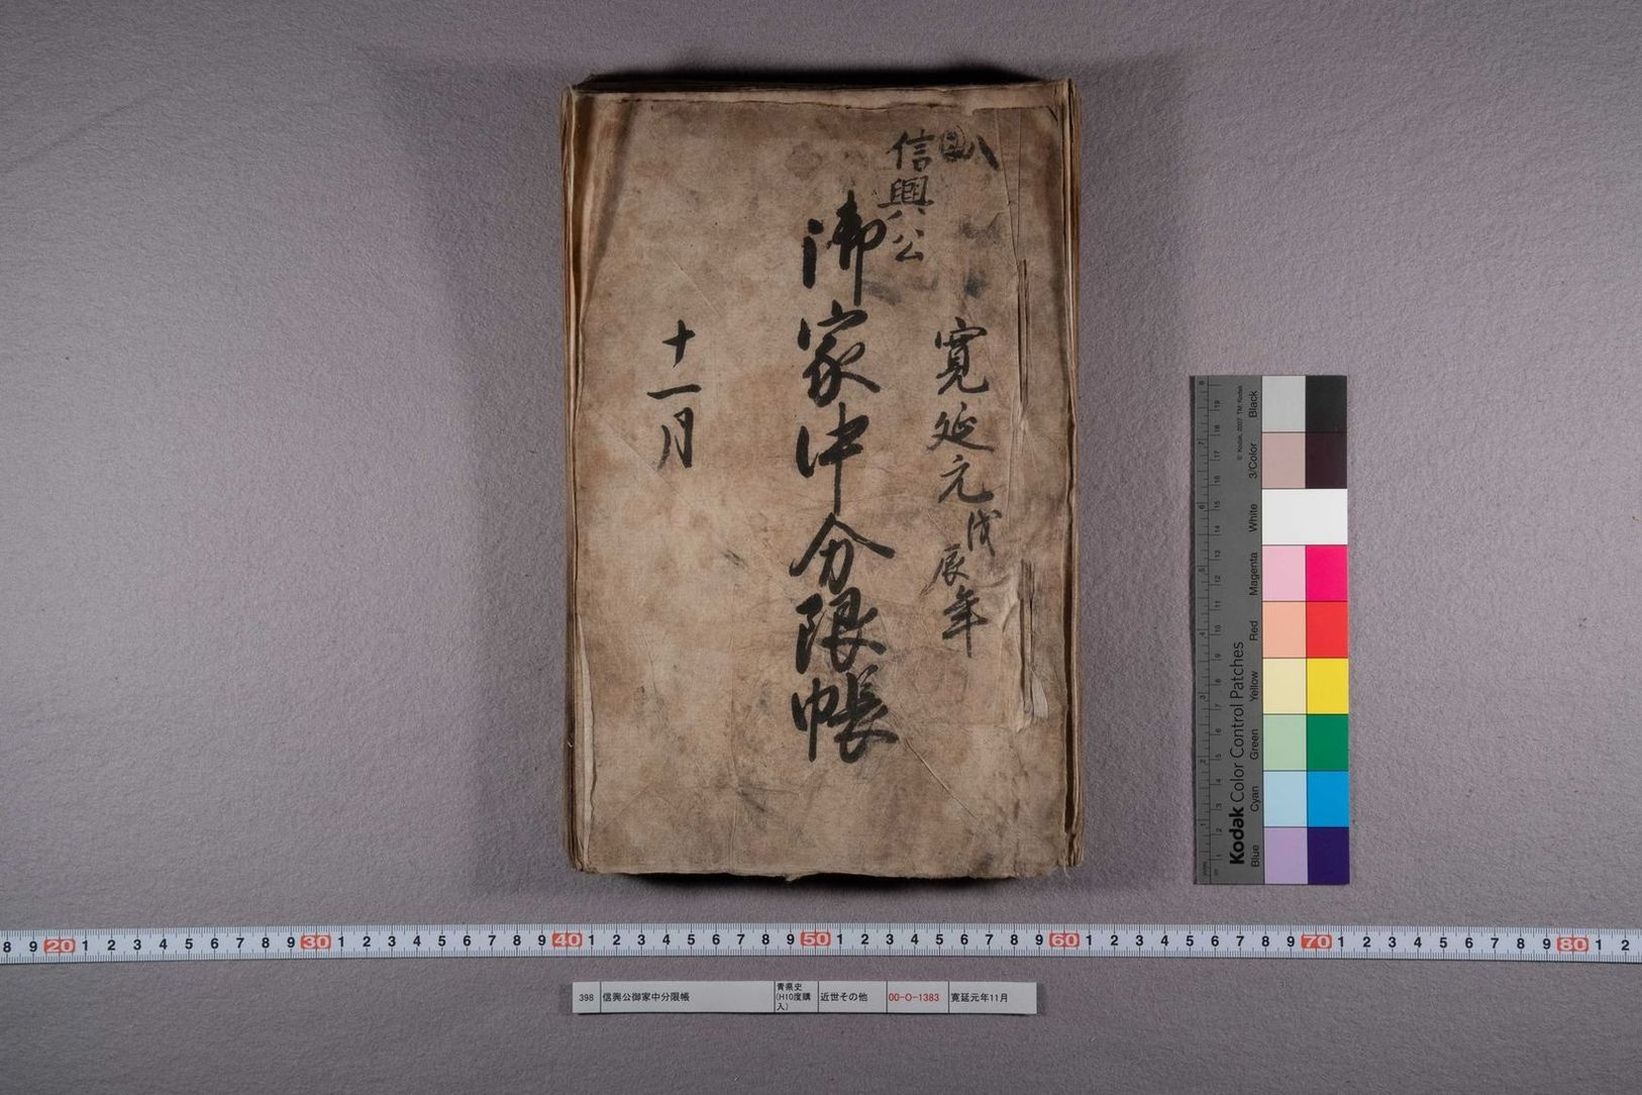 八
信興公
寛延元戊辰年
御家中分限帳
十一月
© Kodak, 2007 TM: Kodak
Kodak Color Control Patches
Blue Cyan Green Yellow Red Magenta White 3/Color Black
8 9 20 1 2 3 4 5 6 7 8 9 30 1 2 3 4 5 6 7 8 9 40 1 2 3 4 5 6 7 8 9 50 1 2 3 4 5 6 7 8 9 60 1 2 3 4 5 6 7 8 9 70 1 2 3 4 5 6 7 8 9 80 1 2
398 信興公御家中分限帳 青県史(H10度購入) 近世その他 00-O-1383 寛延元年11月